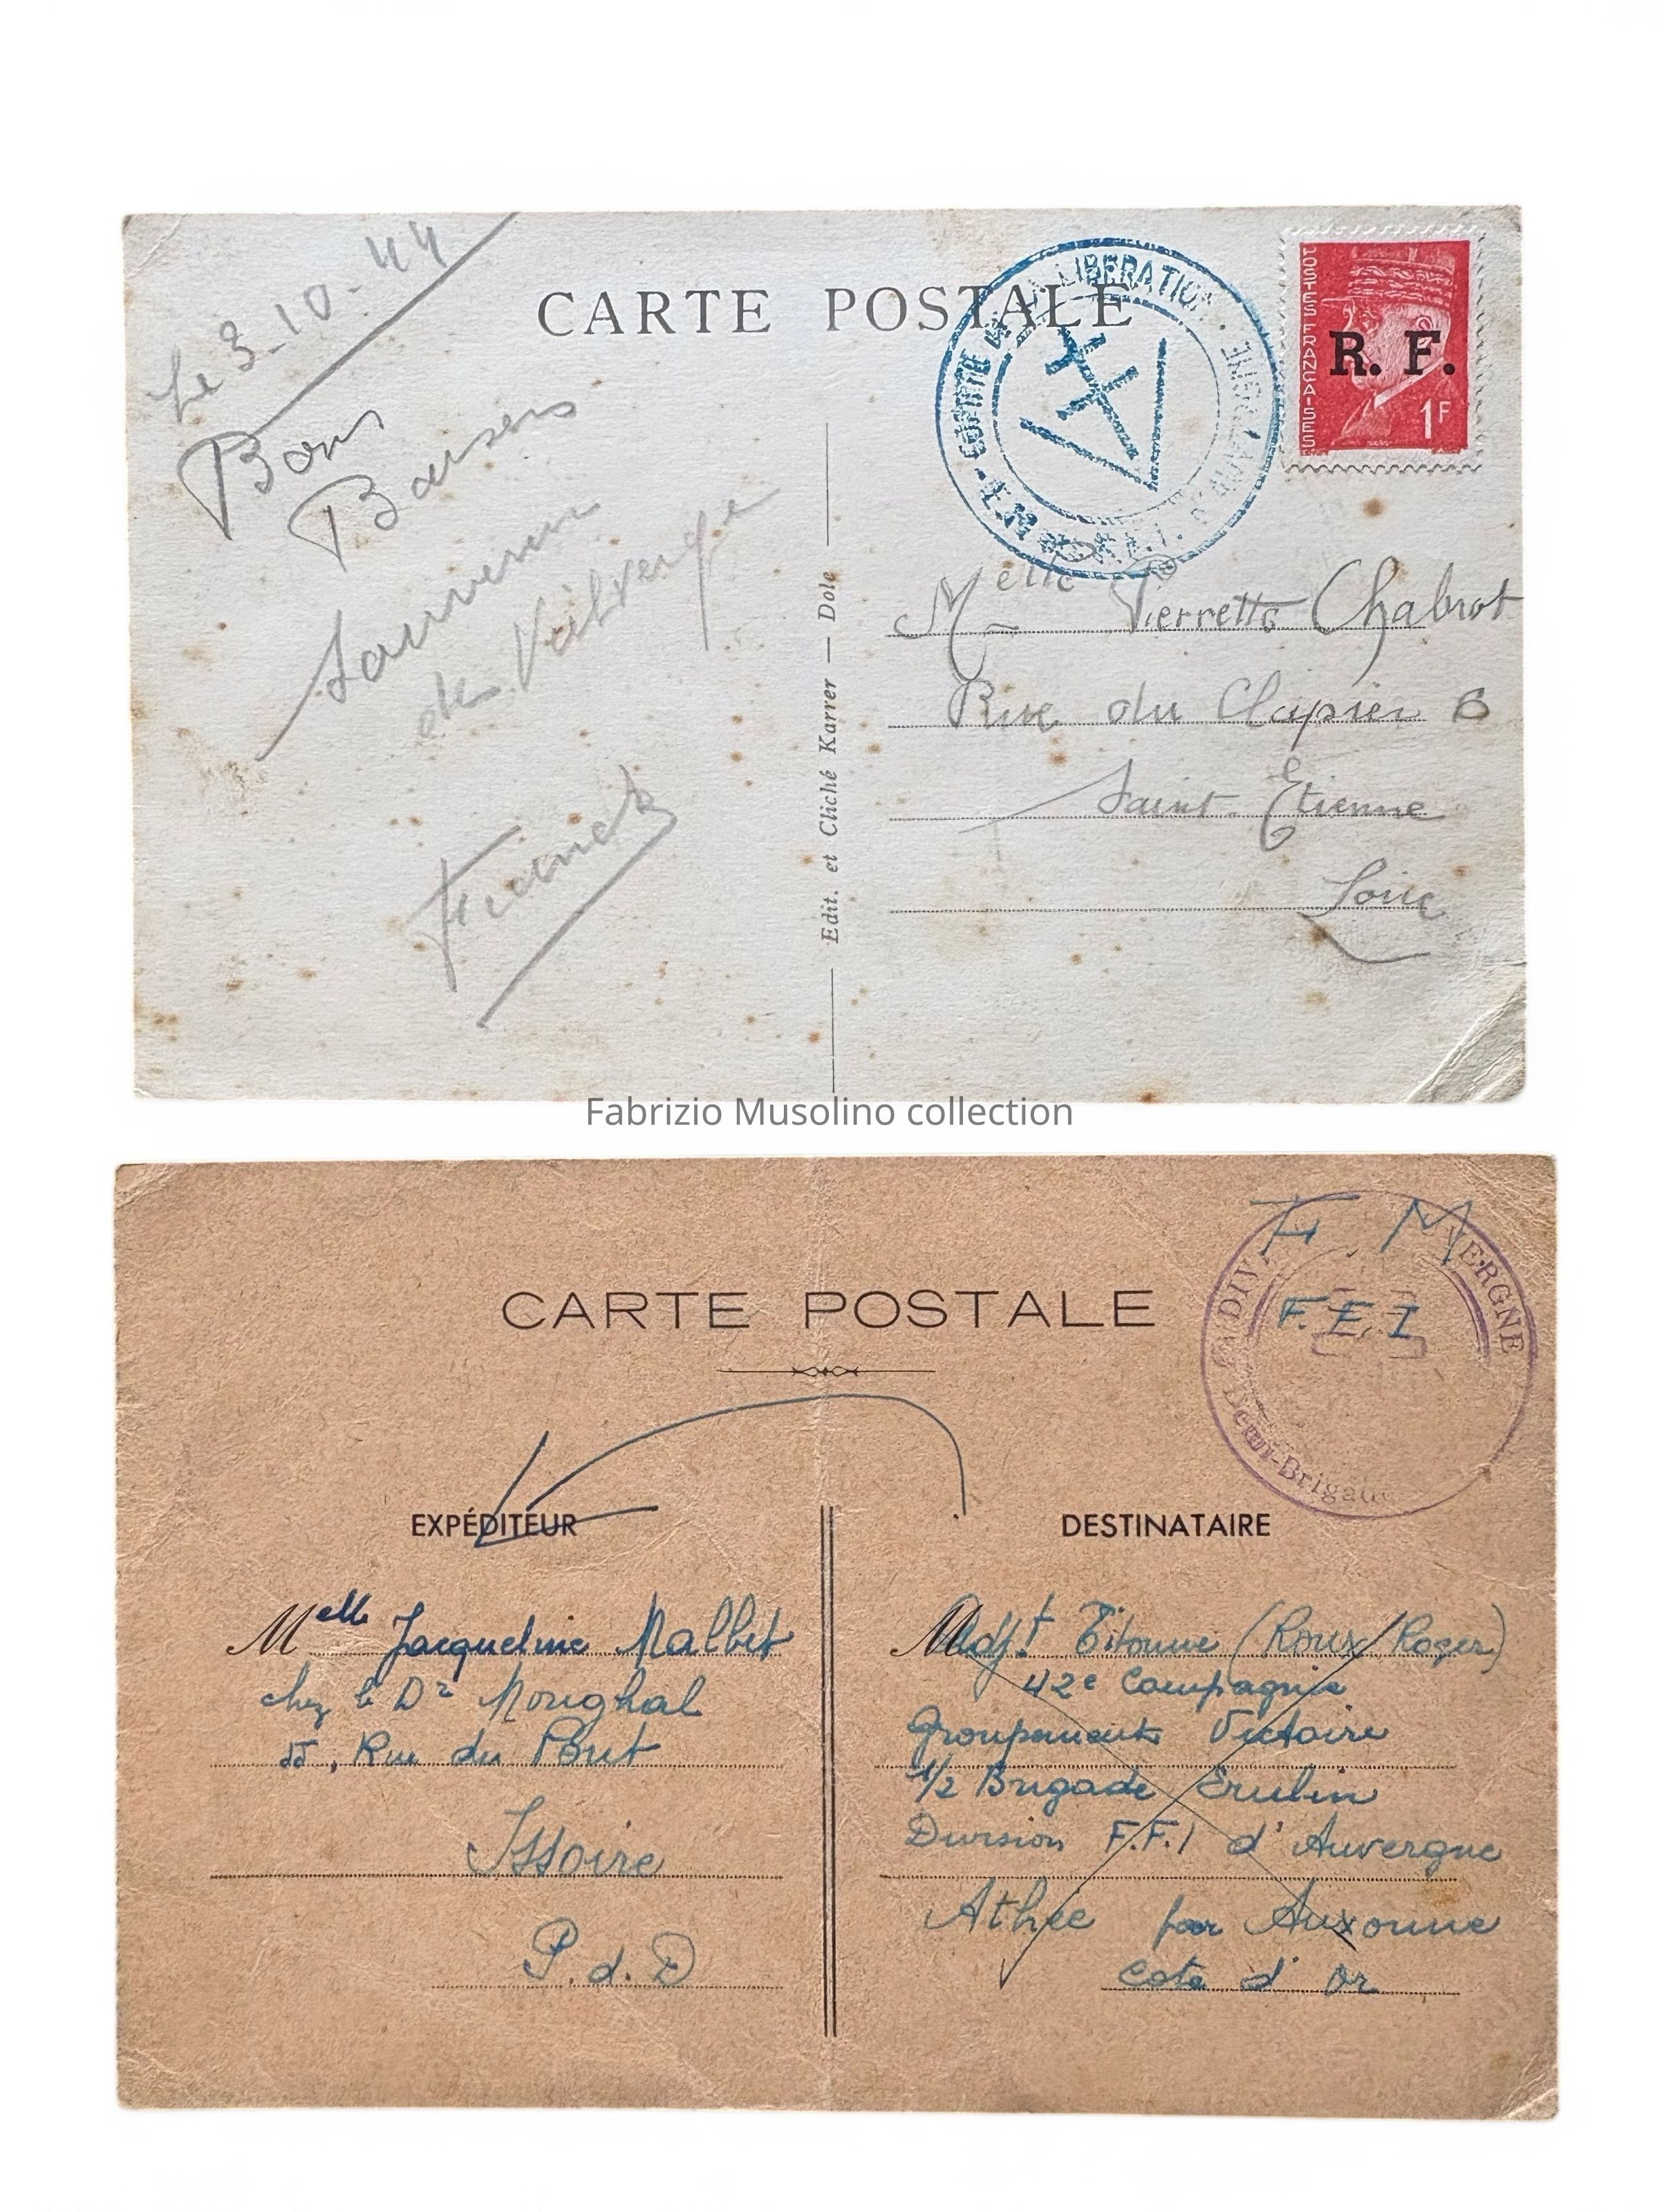 Le 3-10-44
CARTE POSTALE
COMITÉ DE LIBÉRATION
POSTES FRANÇAISES
R. F.
1F
Bons
Baisers
Souvenir
de
Franck
Edit. et Cliché Karrer — Dole
Melle Pierrette Chabrot
Rue du Clapier 6
Saint-Etienne
Loire
Fabrizio Musolino collection
F. M
F.F.I
DIV. ERGNE
Demi-Brigade
CARTE POSTALE
EXPÉDITEUR
Melle Jacqueline Malbet
chez le Dr
55, Rue du Pont
Issoire
P. d. D
DESTINATAIRE
Adjt (Roux Roger)
42e Compagnie
Groupement Victoire
1/2 Brigade
Division F.F.I d'Auvergne
Athée par Auxonne
Cote d'Or